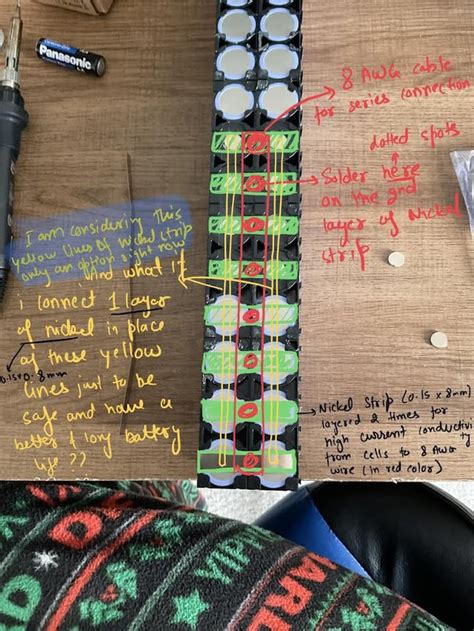 Panasonic
8 AWG cable
for series connection
dotted spots
Solder here
on the 2nd
layer of Nickel
strip
I am considering This
yellow lines of Nickel strip
only an option right now
And what if
i connect 1 layer
of nickel in place
0.15x0.8mm
of these yellow
lines just to be
safe and have a
better & long battery
life ??
Nickel Strip (0.15 x 8mm)
layered 2 times for
high current conductivity
from cells to 8 AWG
wire (in red color)
YIPP
HAR